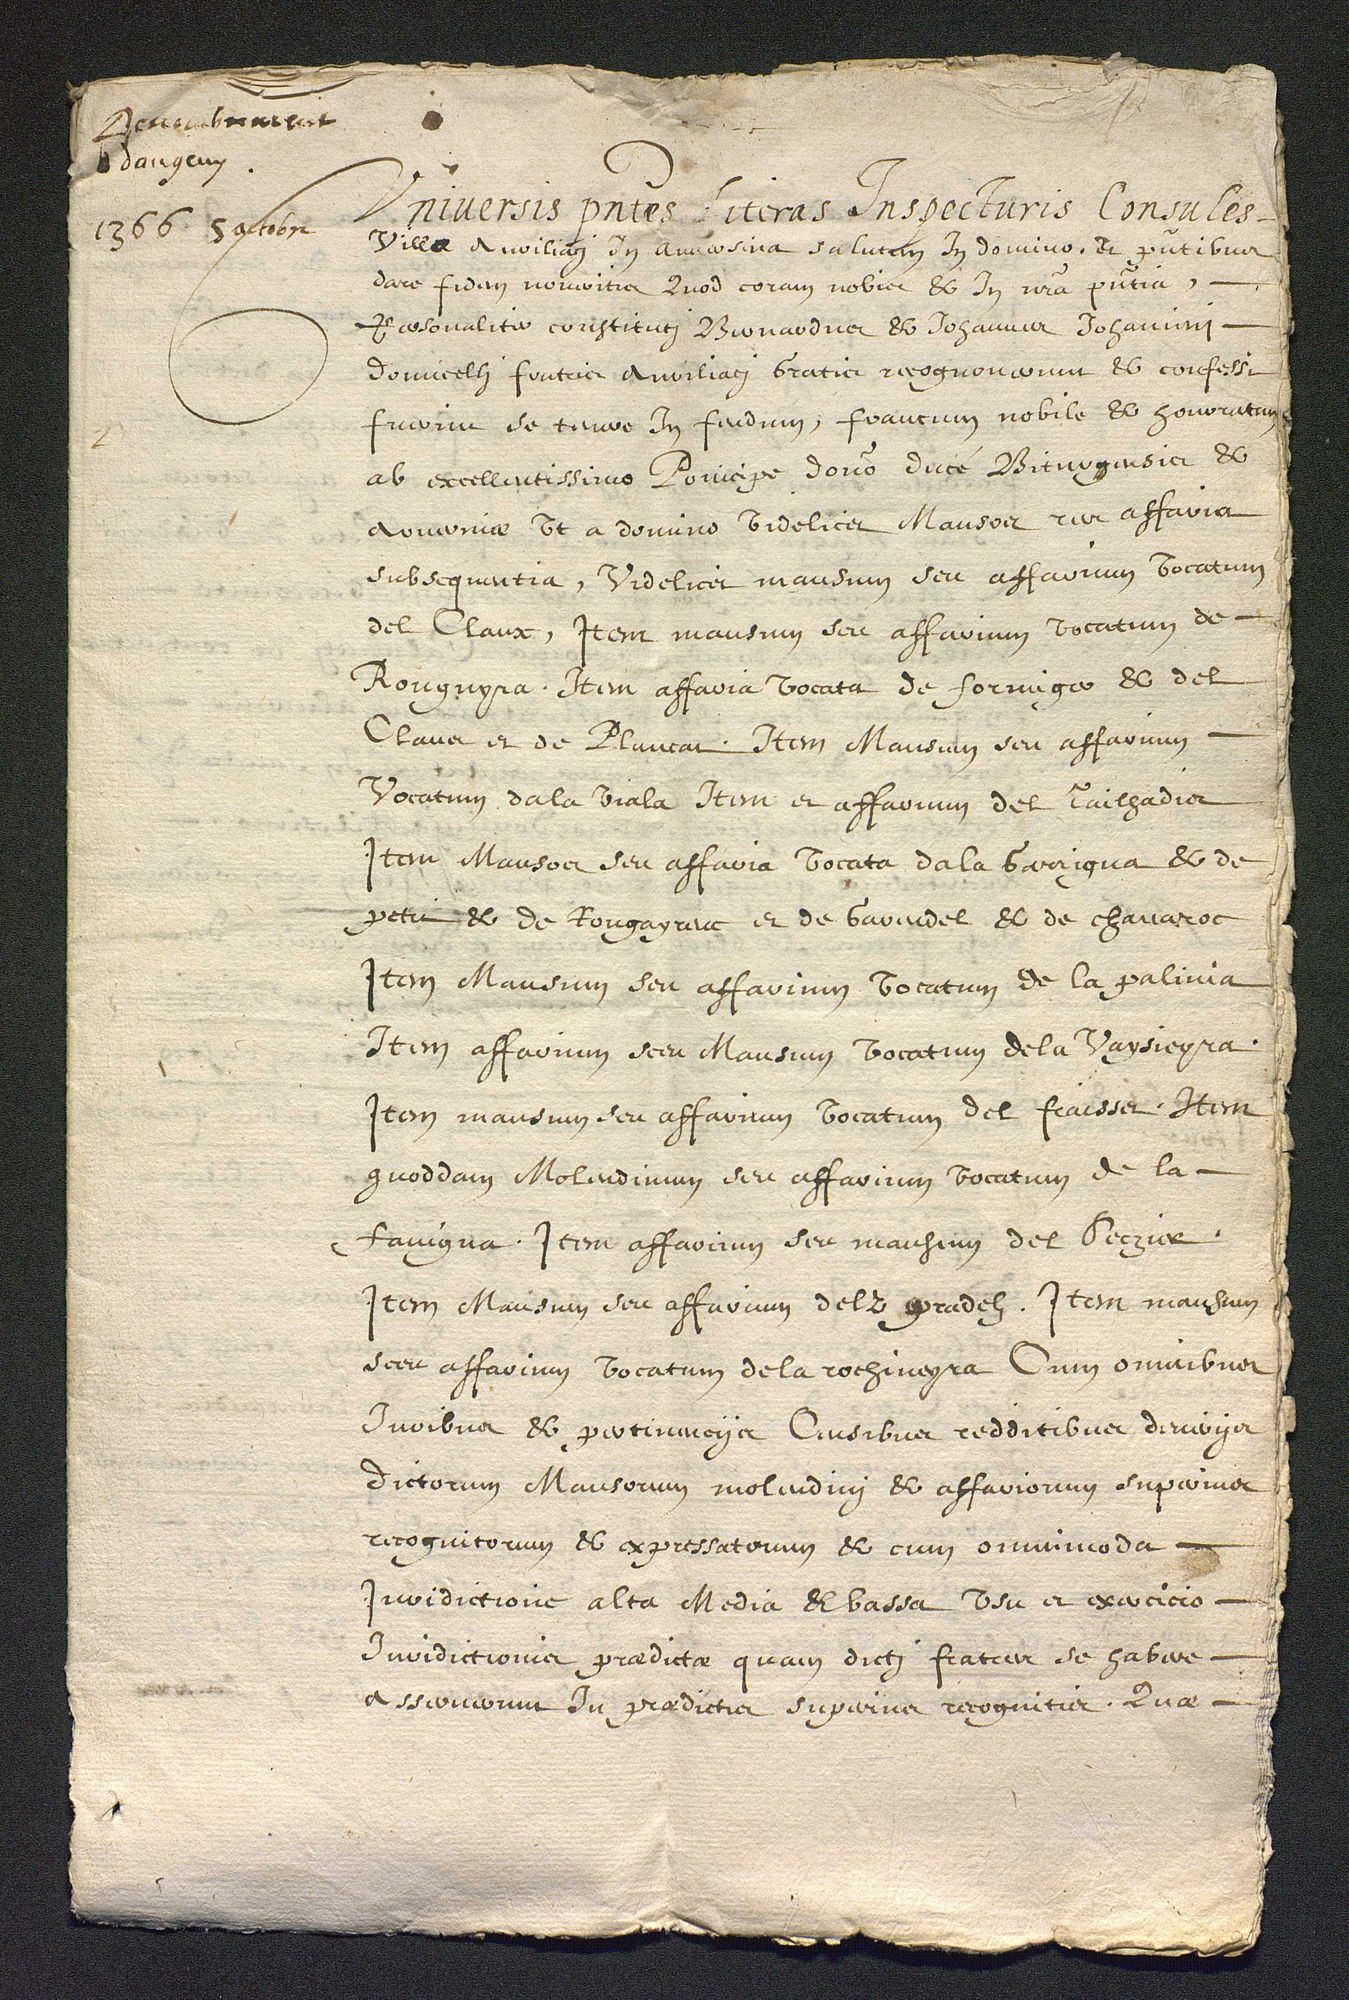 Denombrement
dangeny
1366 5 octobre
Vniversis pntes Literas Inspecturis Consules
Villæ Aureliaci In Auercsina salutem In domino. Et pntibus
dare fidem noueritis Quod coram nobis & In nra pntia,
Personaliter constituti Bernardus & Johannes Johanini
domicelli fratres Aureliaci Gratis recognouerunt & confessi
fuerint se tenere In feudum, francum nobile & honoratum
ab excellentissimo Principe domo ducé Biturgensis &
Aruerniæ vt a domino videlicet Mansos seu affaria
subsequentia, Videlicet mansum seu affarium vocatum
del Claux, Item mansum seu affarium vocatum de
Rougnyra. Item affaria vocata de formiger & del
Claus et de Plancat. Item Mansum seu affarium
Vocatum dala viala Item et affarium del Tailhadis
Item Mansos seu affaria vocata dala Garrigua & de
petu & de Rougayrenc et de Garendel & de chauaroc
Item Mansum seu affarium vocatum de la palinia
Item affarium seu Mansum vocatum dela Vaysieyra.
Item mansum seu affarium vocatum del fraisse. Item
quoddam Molendinum seu affarium vocatum de la
fauigna. Item affarium seu mansum del Peczier.
Item Mansum seu affarium delz pradelz. Item mansum
seu affarium vocatum dela rochineyra Cum omnibus
Iuribus & pertinencijs Censibus redditibus deuerijs
dictorum Mansorum molendini & affariorum superius
recognitorum & expressatorum & cum omnimoda
Juridictione alta Media & bassa vsu et exercicio
Iuridictionis prædictæ quam dicti fratres se habere
Asseruerunt In prædictis superius recognitis. Quæ